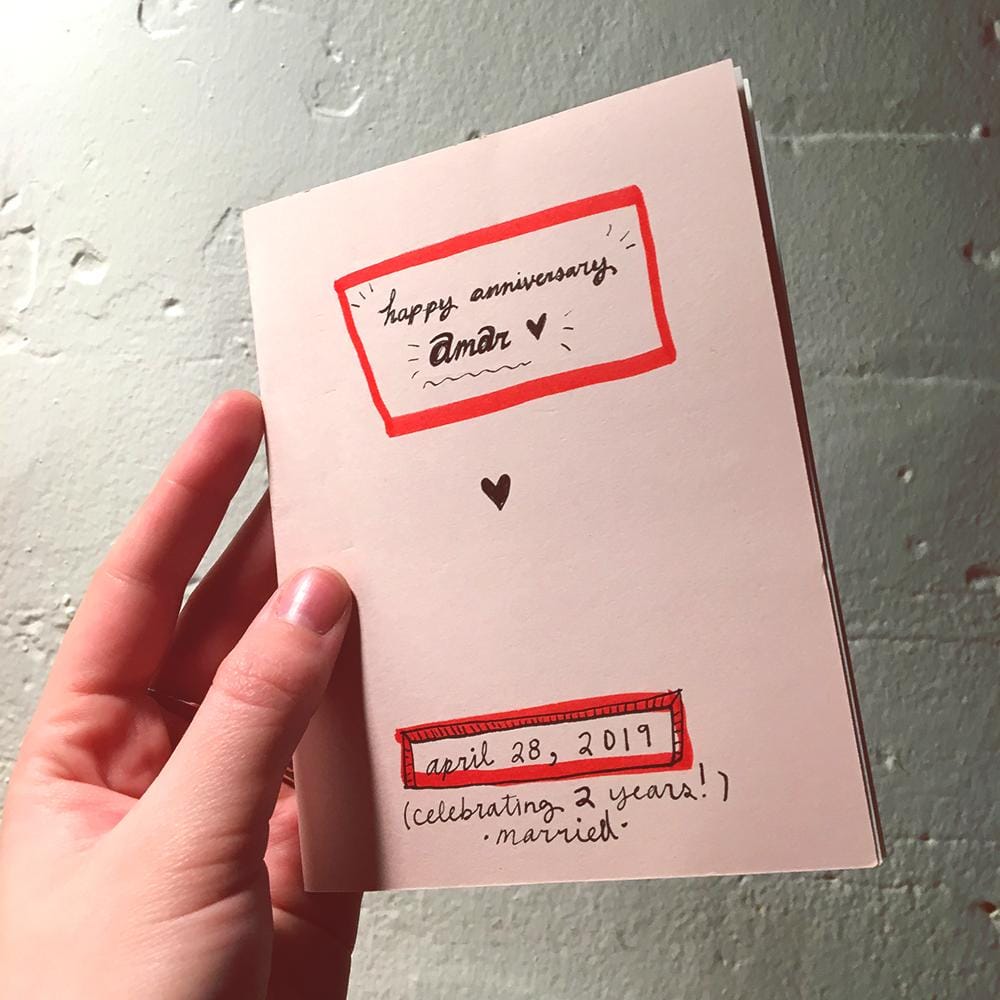 happy anniversary
amar ♥
april 28, 2019
(celebrating 2 years!)
·married·